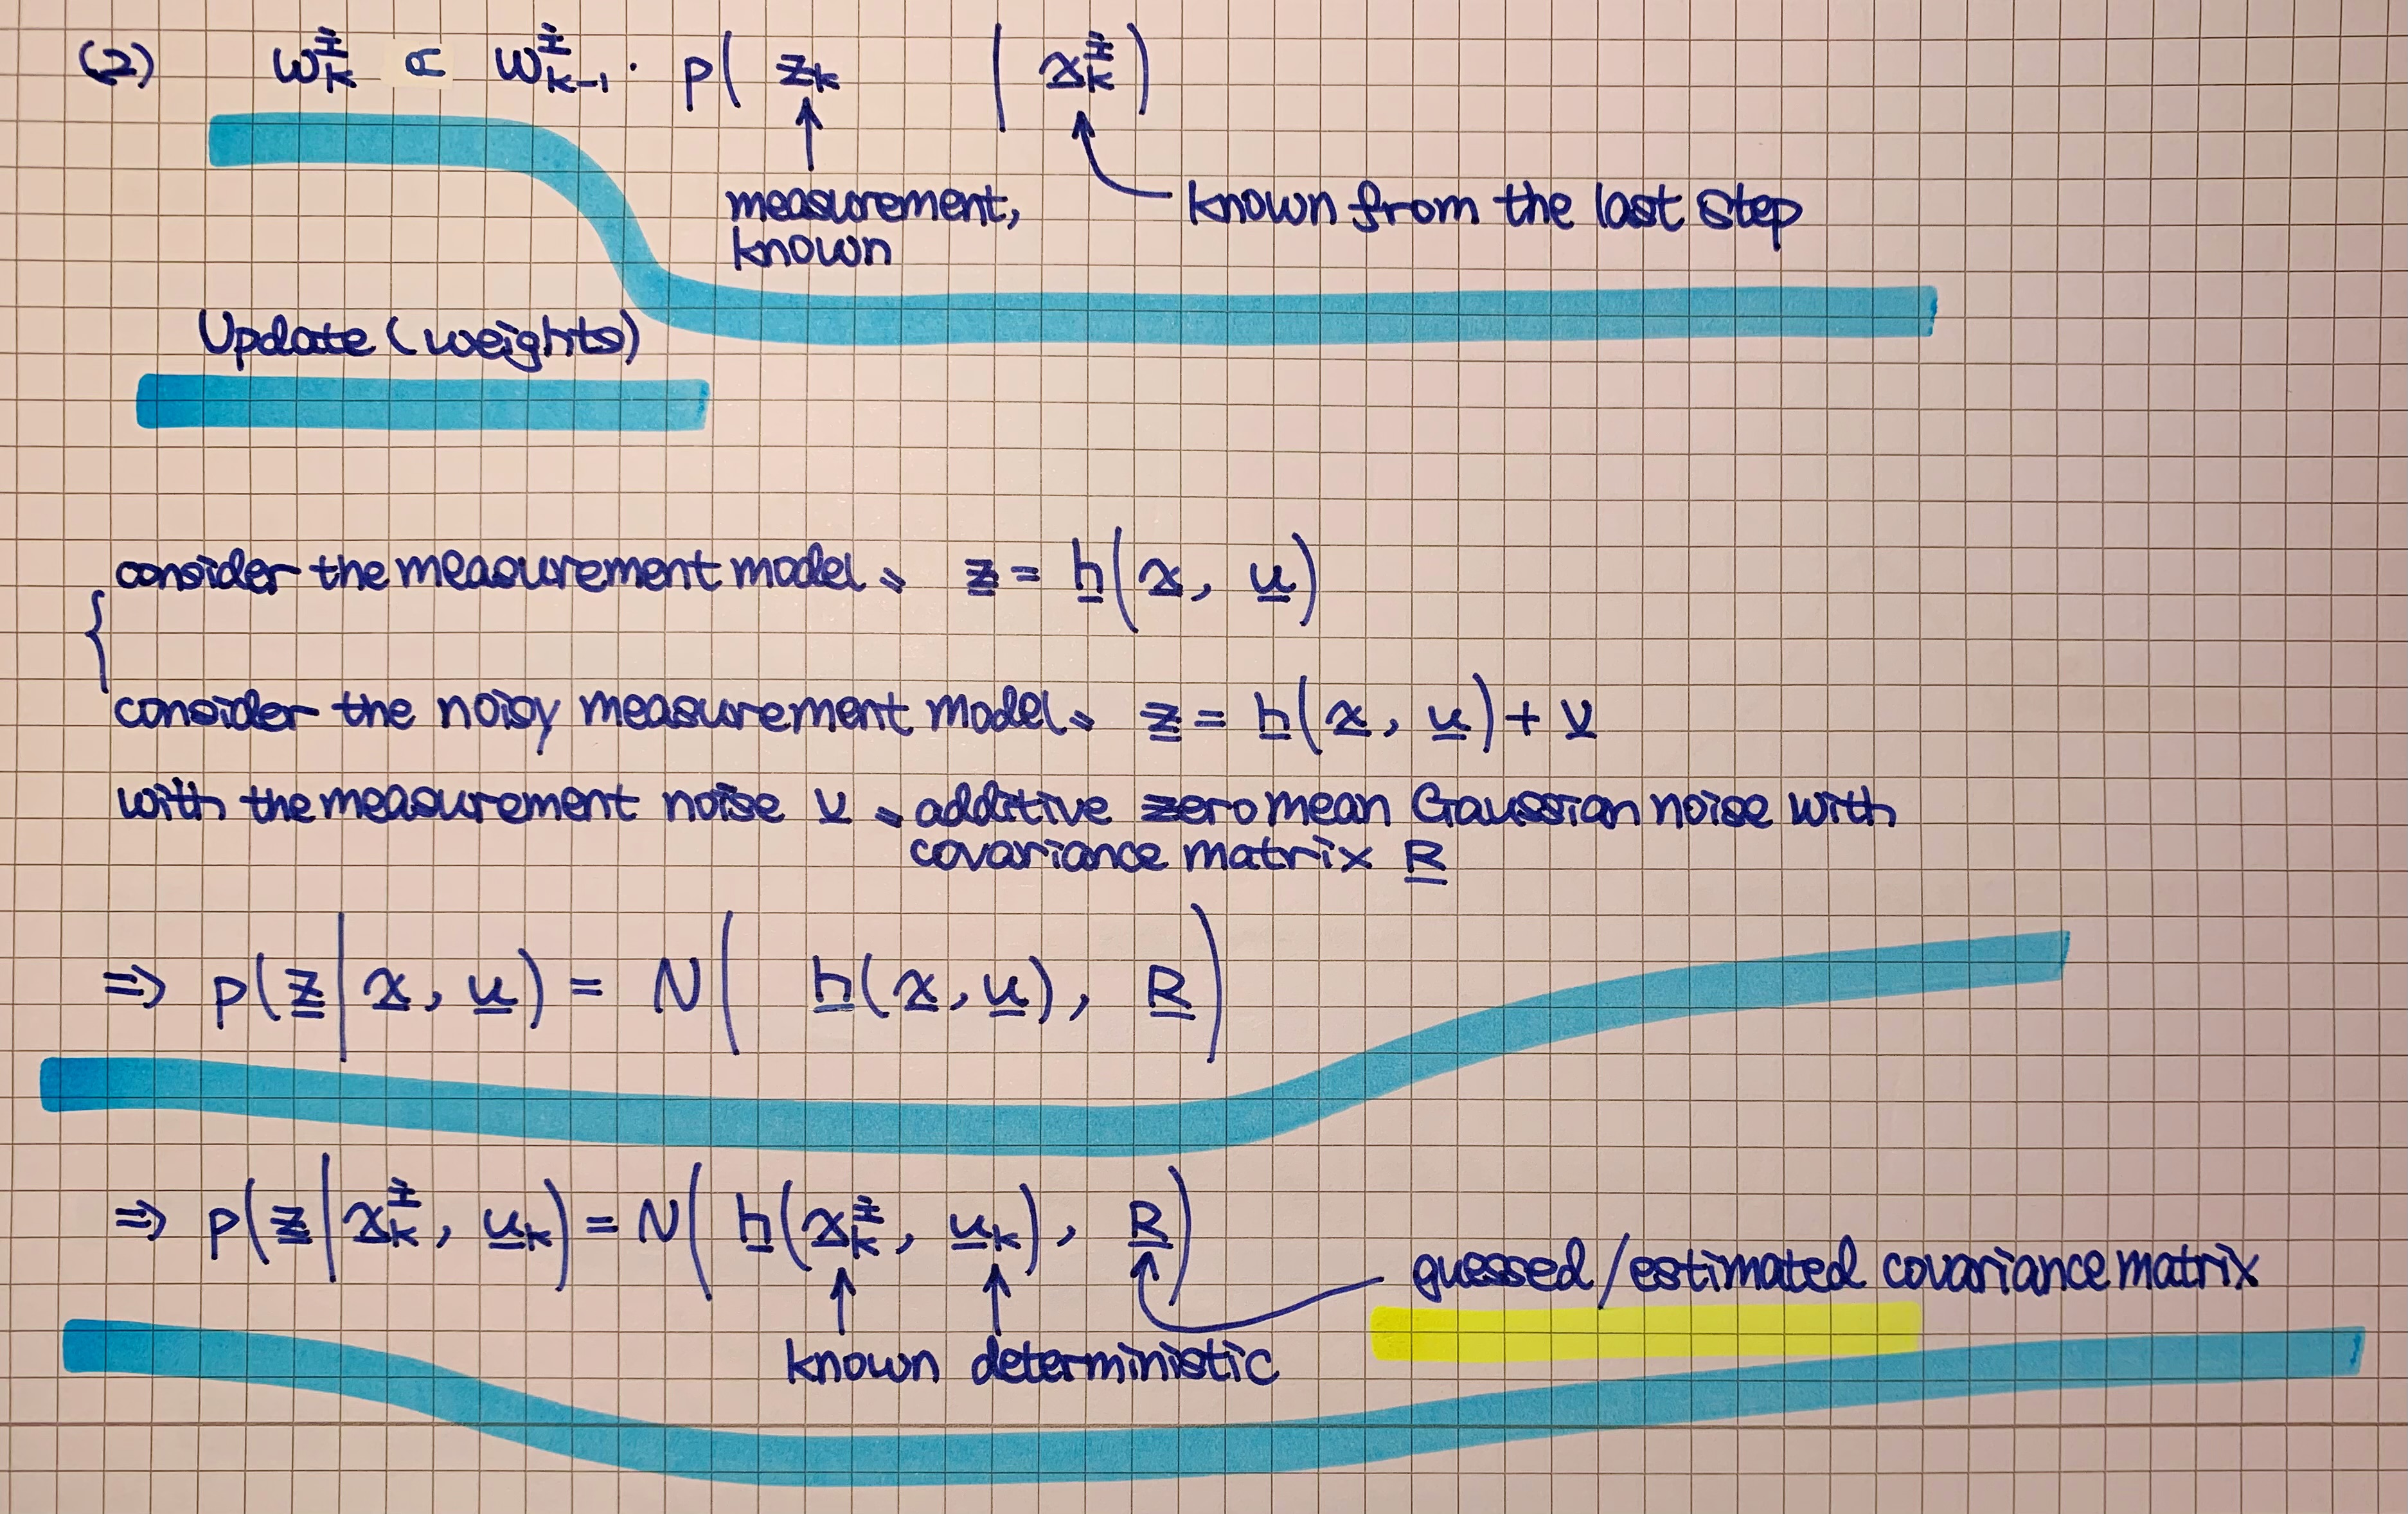 (2) w_k^i ∝ w_{k-1}^i · p( z_k | x_k^i )
measurement, known from the last step
known
Update (weights)
consider the measurement model, z = h(x, u)
consider the noisy measurement model, z = h(x, u) + v
with the measurement noise v, additive zero mean Gaussian noise with
covariance matrix R
⇒ p(z | x, u) = N( h(x, u), R )
⇒ p(z | x_k^i, u_k) = N( h(x_k^i, u_k), R )
guessed/estimated covariance matrix
known deterministic